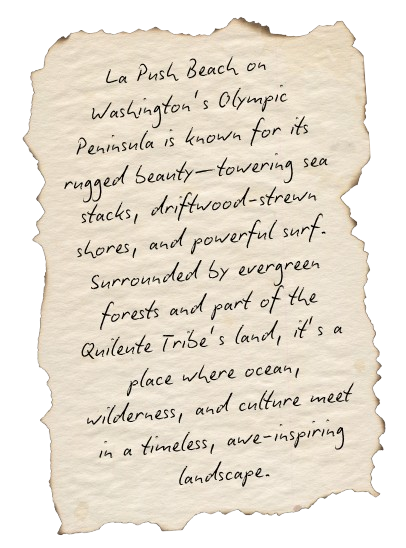 La Push Beach on
Washington's Olympic
Peninsula is known for its
rugged beauty—towering sea
stacks, driftwood-strewn
shores, and powerful surf.
Surrounded by evergreen
forests and part of the
Quileute Tribe's land, it's a
place where ocean,
wilderness, and culture meet
in a timeless, awe-inspiring
landscape.